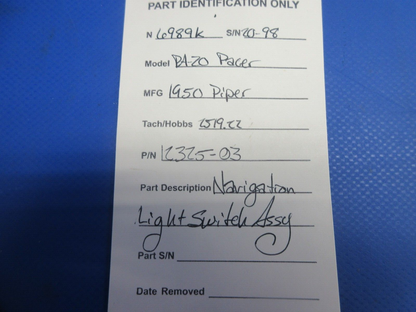 PART IDENTIFICATION ONLY
N 6989K S/N 20-98
Model PA-20 Pacer
MFG 1950 Piper
Tach/Hobbs 2519.22
P/N 12325-03
Part Description Navigation
Light Switch Assy
Part S/N
Date Removed